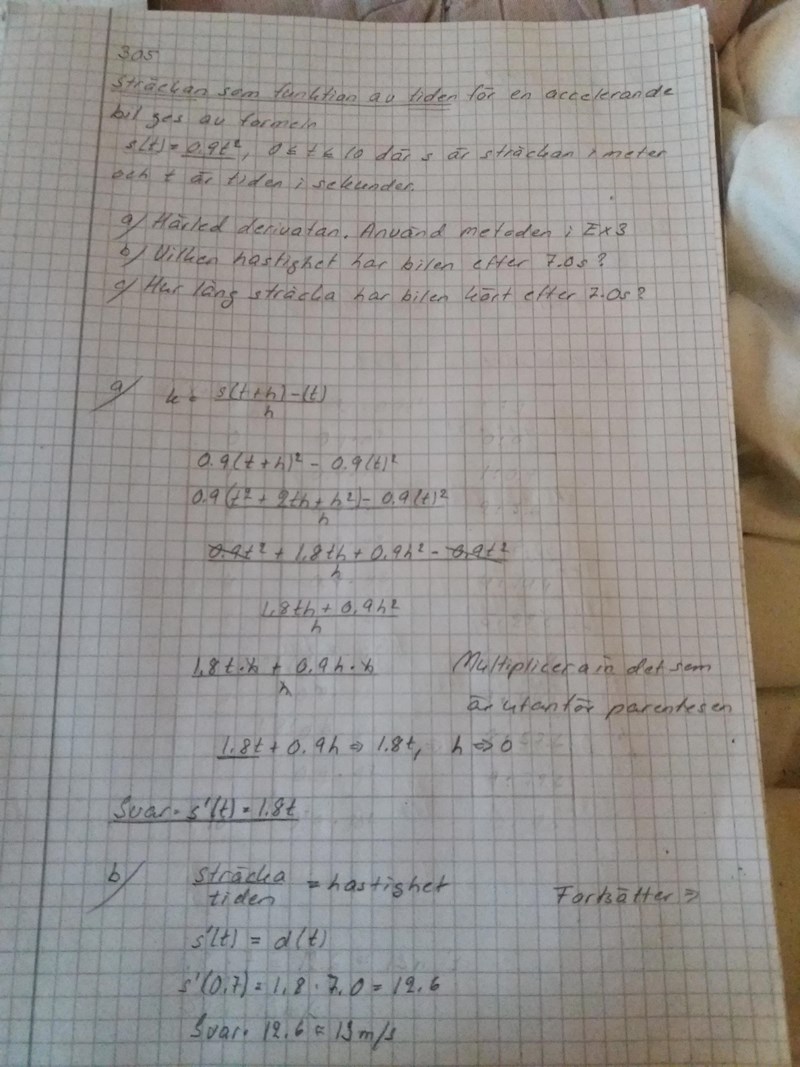 305
Sträckan som funktion av tiden för en accelerande
bil ges av formeln
s(t) = 0.9t², 0 ≤ t ≤ 10 där s är sträckan i meter
och t är tiden i sekunder.
a/ Härled derivatan. Använd metoden i Ex3
b/ Vilken hastighet har bilen efter 7.0s?
c/ Hur lång sträcka har bilen kört efter 7.0s?
a/ k = s(t+h)-(t) / h
0.9(t+h)² - 0.9(t)²
0.9(t² + 2th + h²) - 0.9(t)² / h
0.9t² + 1.8th + 0.9h² - 0.9t² / h
1.8th + 0.9h² / h
1.8t·h + 0.9h·h / h Multiplicera in det som
är utanför parentesen
1.8t + 0.9h ⇒ 1.8t, h ⇒ 0
Svar. s'(t) = 1.8t
b/ sträcka / tiden = hastighet Fortsätter ⇒
s'(t) = d(t)
s'(0,7) = 1.8 · 7.0 = 12.6
Svar. 12.6 ≈ 13 m/s